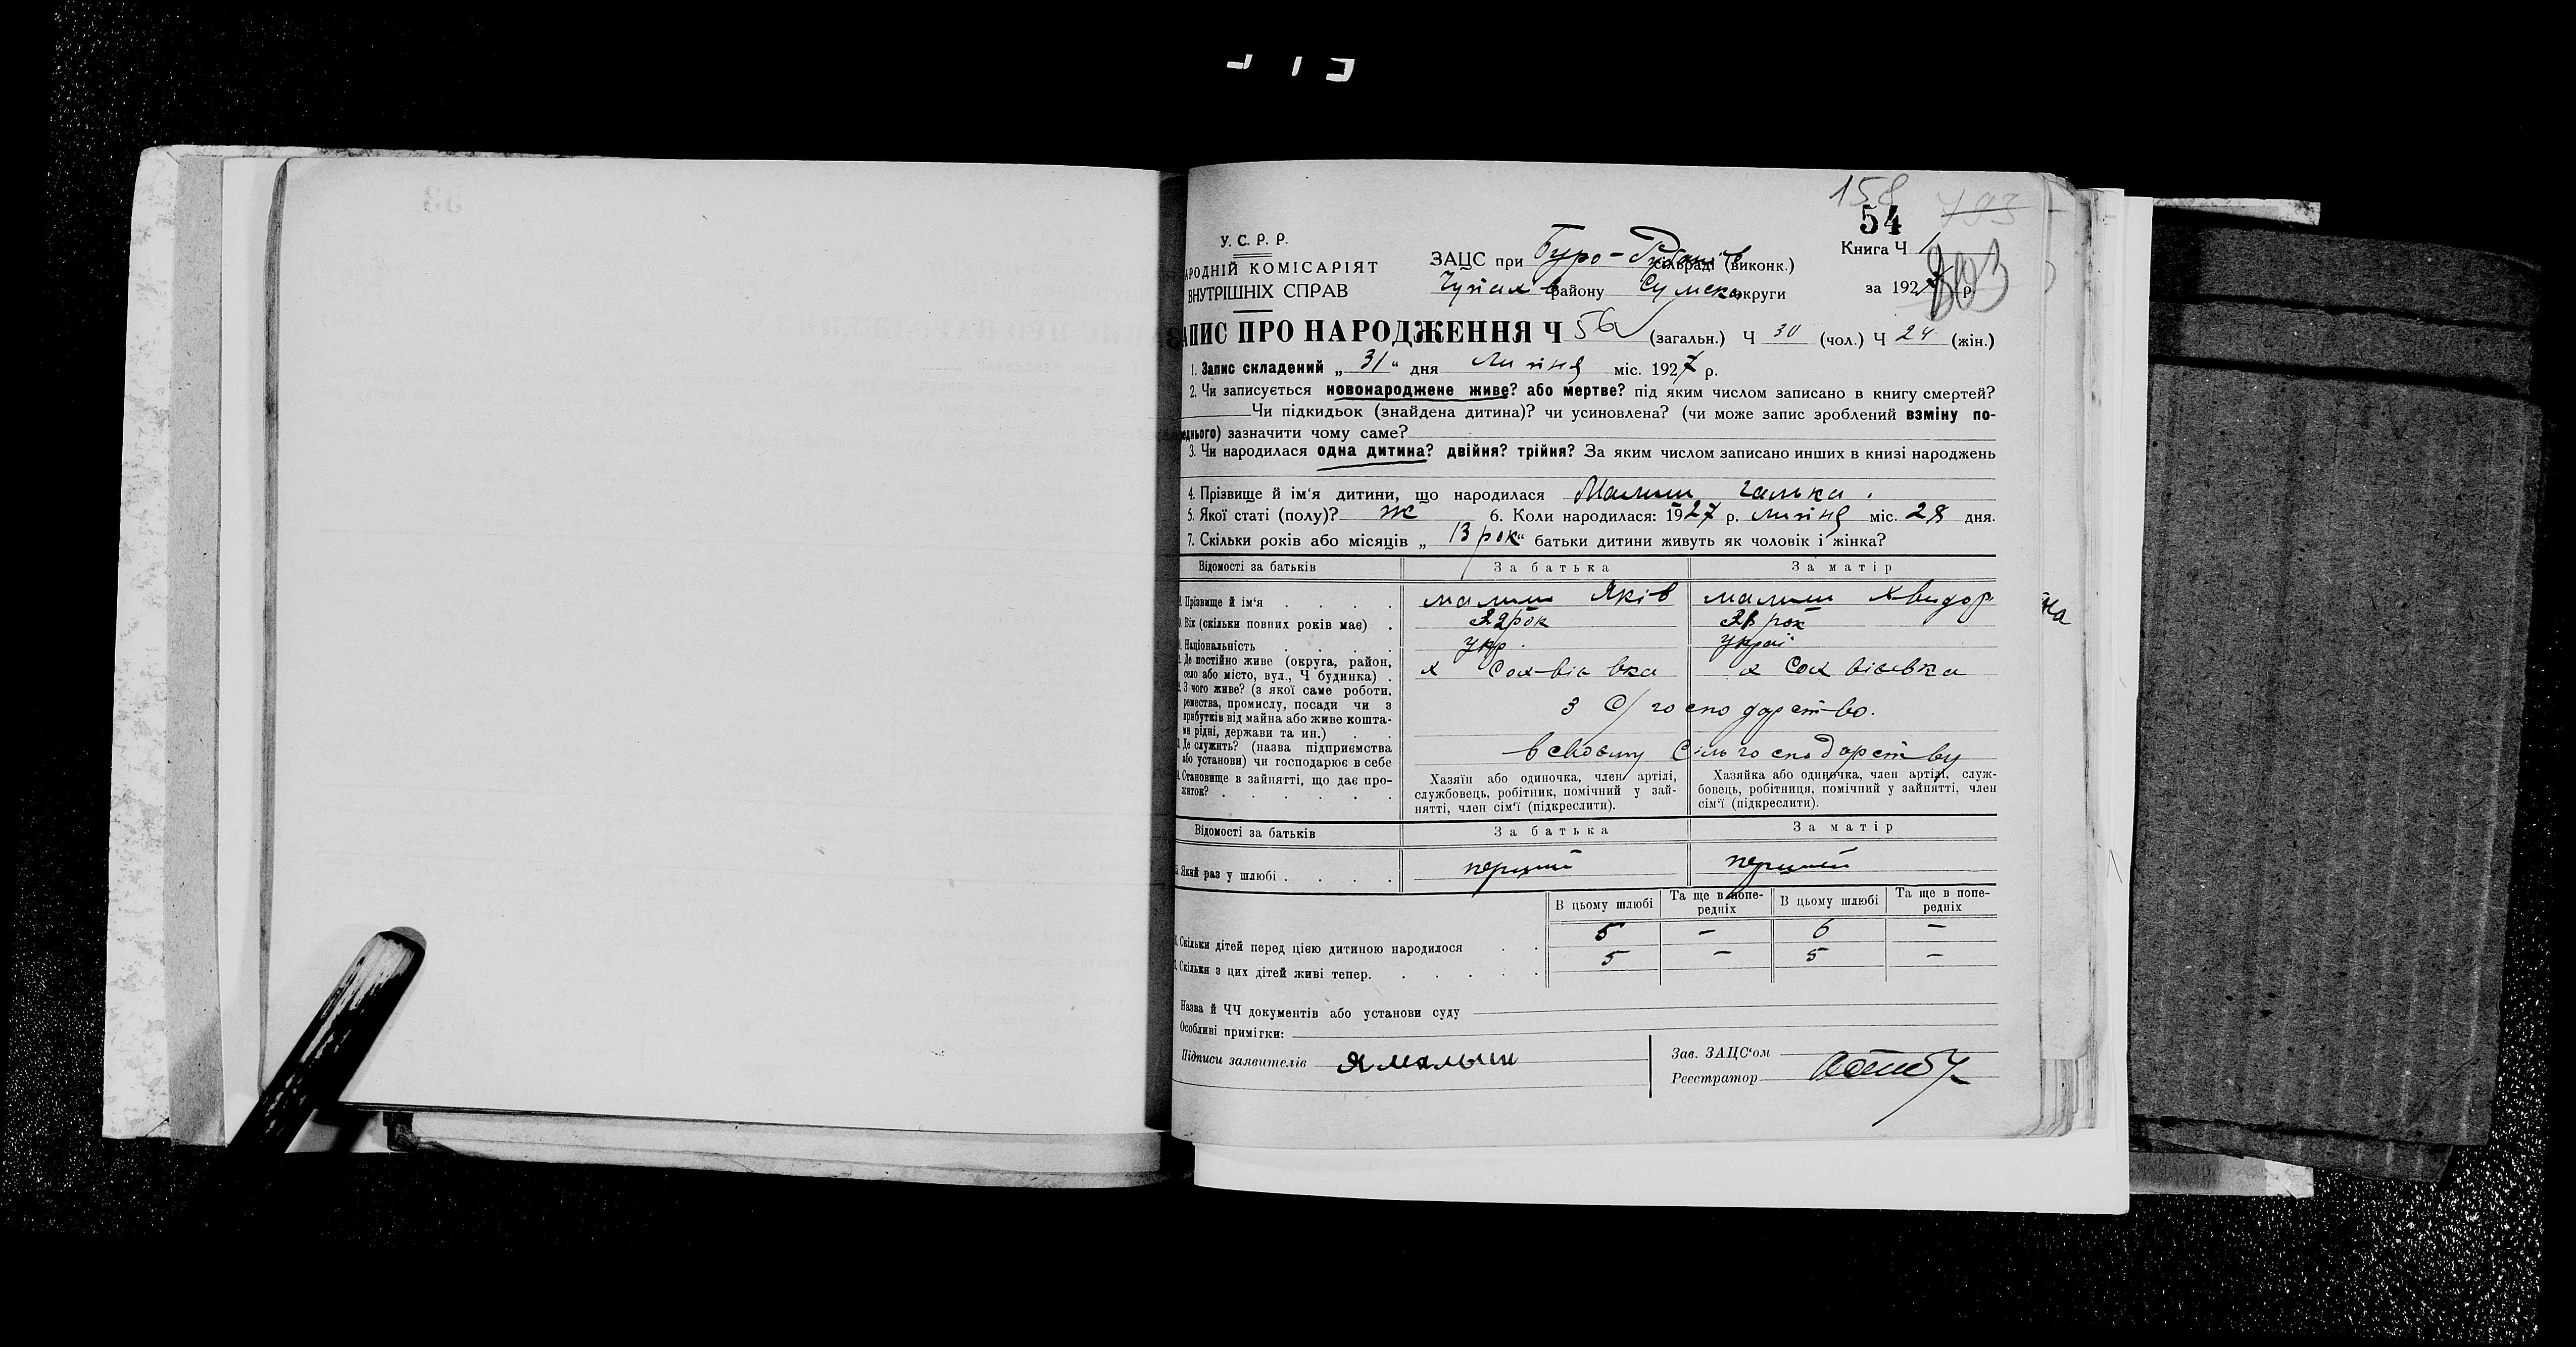 158
54
У. С. Р. Р.
АРОДНІЙ КОМІСАРІЯТ
ВНУТРІШНІХ СПРАВ
ЗАЦС при Буро- сільраді (виконк.)
району Сумська округи
Книга Ч 1
за 1927 р.
803
АПИС ПРО НАРОДЖЕННЯ Ч 56 (загальн.) Ч 30 (чол.) Ч 24 (жін.)
1. Запис складений „ 31 “ дня Липня міс. 1927 р.
2. Чи записується новонароджене живе? або мертве? під яким числом записано в книгу смертей?
Чи підкидьок (знайдена дитина)? чи усиновлена? (чи може запис зроблений взміну по-
еднього) зазначити чому саме?
3. Чи народилася одна дитина? двійня? трійня? За яким числом записано инших в книзі народжень
4. Прізвище й ім‘я дитини, що народилася Малиш Галька.
5. Якої статі (полу)? ж 6. Коли народилася: 1927 р. липня міс. 28 дня.
7. Скільки років або місяців „ 13 рок “ батьки дитини живуть як чоловік і жінка?
Відомості за батьків За батька За матір
Прізвище й ім‘я малиш Яків малиш Хвидор
на
Вік (скільки повних років має) 32 рок рок
Національність укр. украї
Де постійно живе (округа, район,
село або місто, вул., Ч будинка)
х х
З чого живе? (з якої саме роботи,
ремества, промислу, посади чи з
прибутків від майна або живе кошта-
ми рідні, держави та ин.)
З С/господарство.
Де служить? (назва підприємства
або установи) чи господарює в себе
в своєму Сільгосподарству
Становище в зайнятті, що дає про-
житок?
Хазяїн або одиночка, член артілі,
службовець, робітник, помічний у зай-
нятті, член сім‘ї (підкреслити).
Хазяйка або одиночка, член артілі, служ-
бовець, робітниця, помічний у зайнятті, член
сім‘ї (підкреслити).
Відомості за батьків За батька За матір
Який раз у шлюбі перший перший
В цьому шлюбі Та ще в попе-
редніх В цьому шлюбі Та ще в попе-
редніх
Скільки дітей перед цією дитиною народилося 5 – 6 –
Скільки з цих дітей живі тепер. 5 – 5 –
Назва й ЧЧ документів або установи суду
Особливі примігки:
Підписи заявителів Я малыш
Зав. ЗАЦС‘ом
Реєстратор